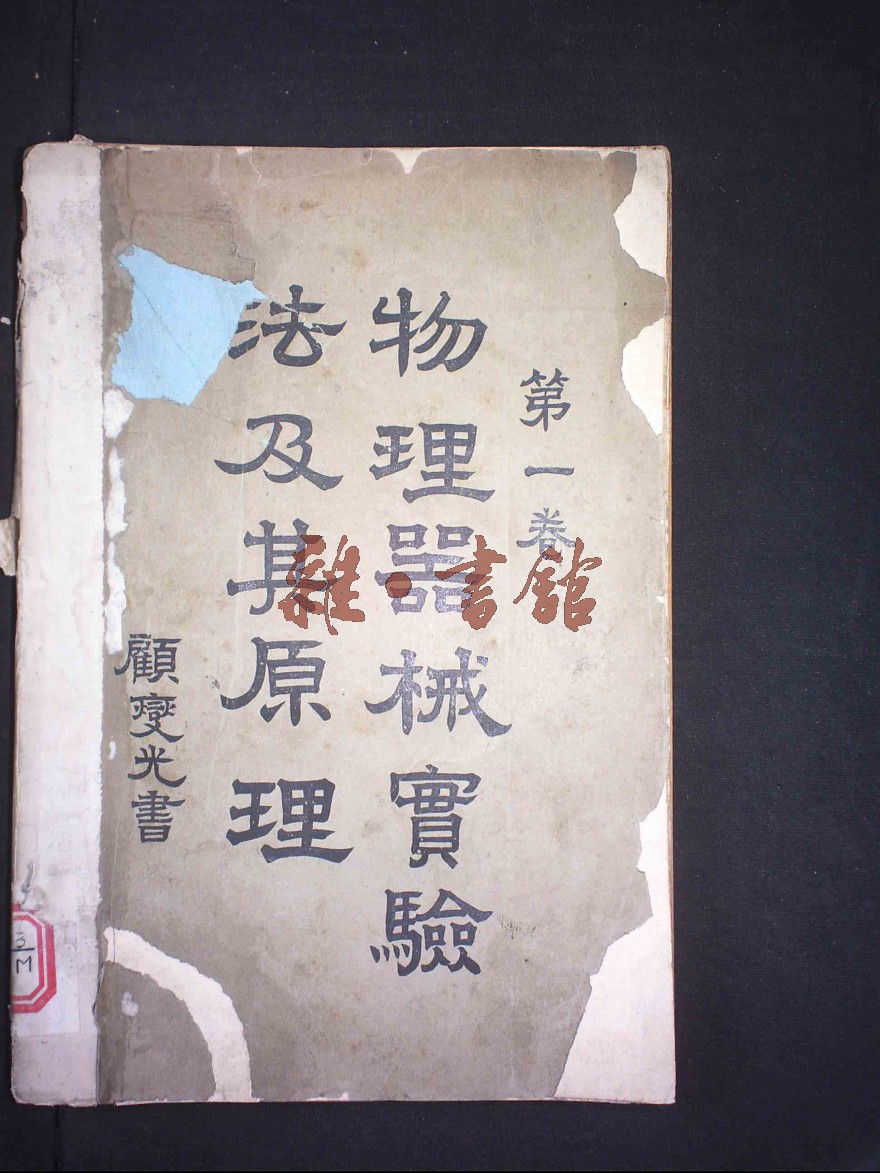 第一卷
物理器械實驗
法及其原理
顧燮光書
雜·書館
3
M